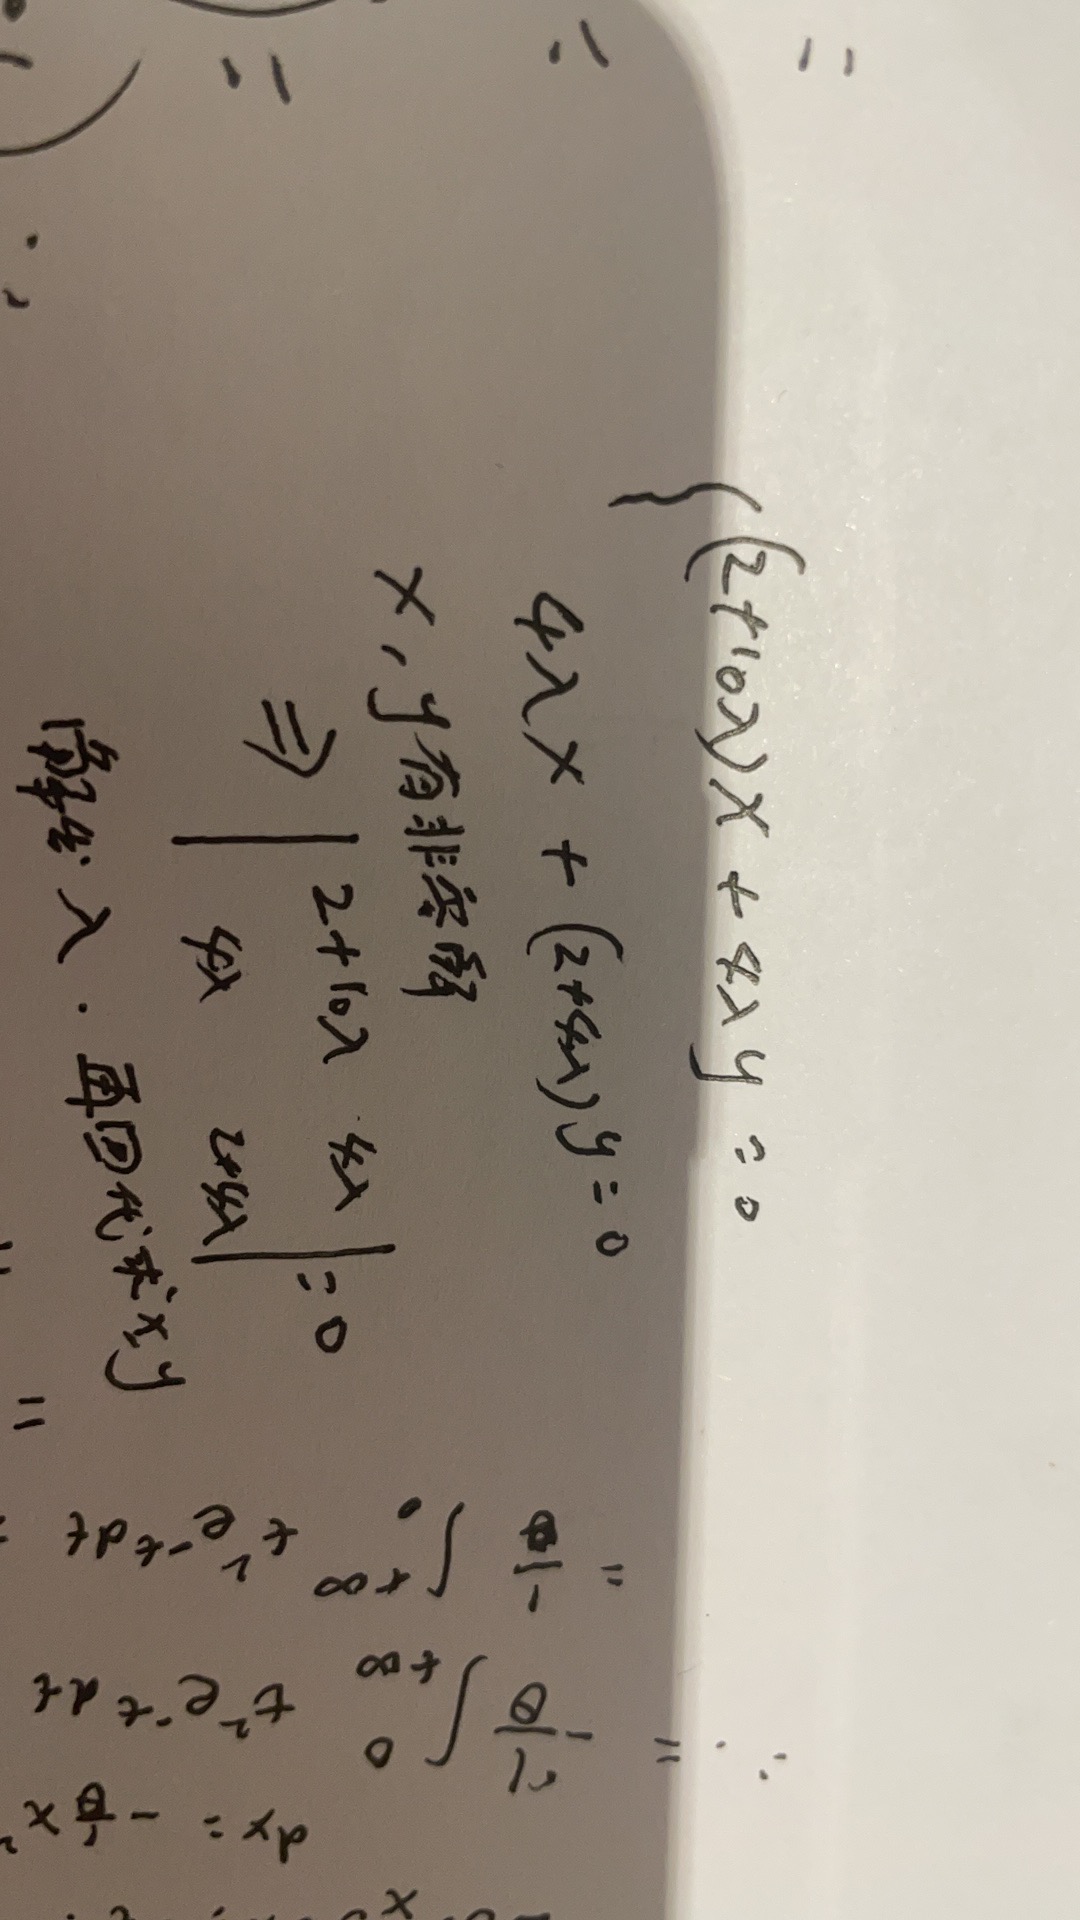 {(2+10λ)x + 4λy = 0
4λx + (2+4λ)y = 0
x, y有非零解
⇒ | 2+10λ 4λ |
| 4λ 2+4λ | = 0
解出λ. 再回代求x,y
=
=
=
=
= 1/θ
∫ 0 +∞
t² e^-t dt
∴ =
θ
∫ 0 +∞
t² e^-t dt
dx = - θ x